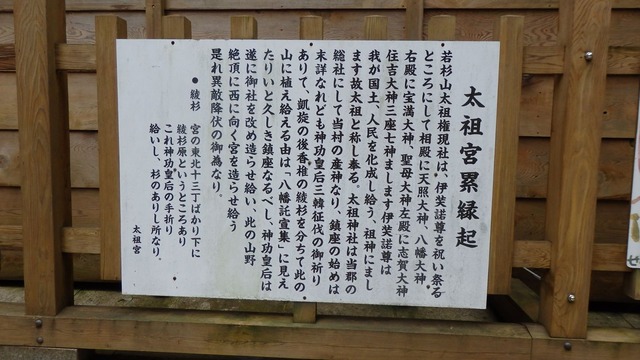 太祖宮累縁起
若杉山太祖権現社は、伊弉諾尊を祝い祭る
ところにして相殿に天照大神、八幡大神
右殿に宝満大神、聖母大神左殿に志賀大神
住吉大神三座七神まします伊弉諾尊は
我が国土、人民を化成し給う、祖神にまし
ます故太祖と称し奉る。太祖神社は当郡の
総社にして当村の産神なり、鎮座の始めは
末詳なれども神功皇后三韓征伐の御祈り
ありて、凱旋の後香椎の綾杉を分ちて此の
山に植え給える由は「八幡託宣集」に見え
たりいと久しき鎮座なるべし、神功皇后は
遂に御社を改め造らせ給い、此の山野
絶頂に西に向く宮を造らせ給う
是れ異敵降伏の御為なり。
●綾杉 宮の東北十三丁ばかり下に
綾杉原というところあり
これ神功皇后の手折り
給いし、杉のありし所なり、
太祖宮